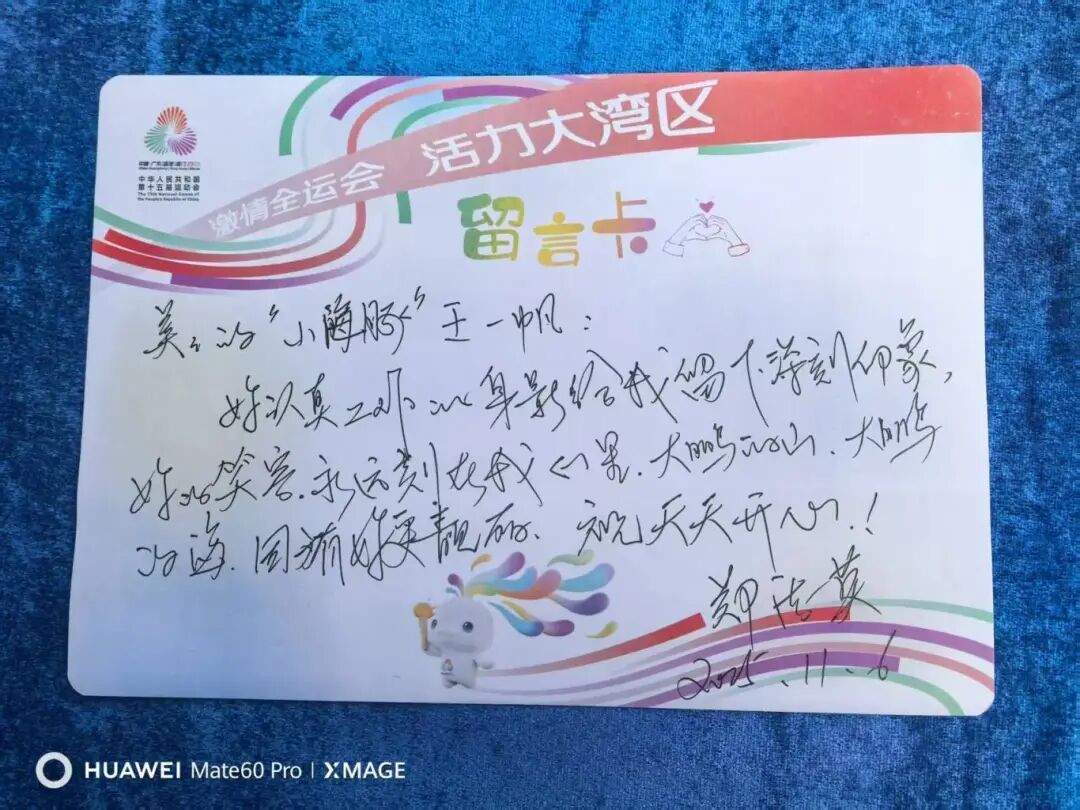 激情全运会 活力大湾区
中华人民共和国
第十五届运动会
The 15th National Games of
the People's Republic of China
留言卡
美丽的“小海豚”王一帆：
妳认真工作的身影给我留下深刻印象，
妳的笑容永远刻在我心里。大鹏的山、大鹏
的海，因有妳更靓丽。祝天天开心！
郑
2025.11.6
HUAWEI Mate60 Pro | XMAGE